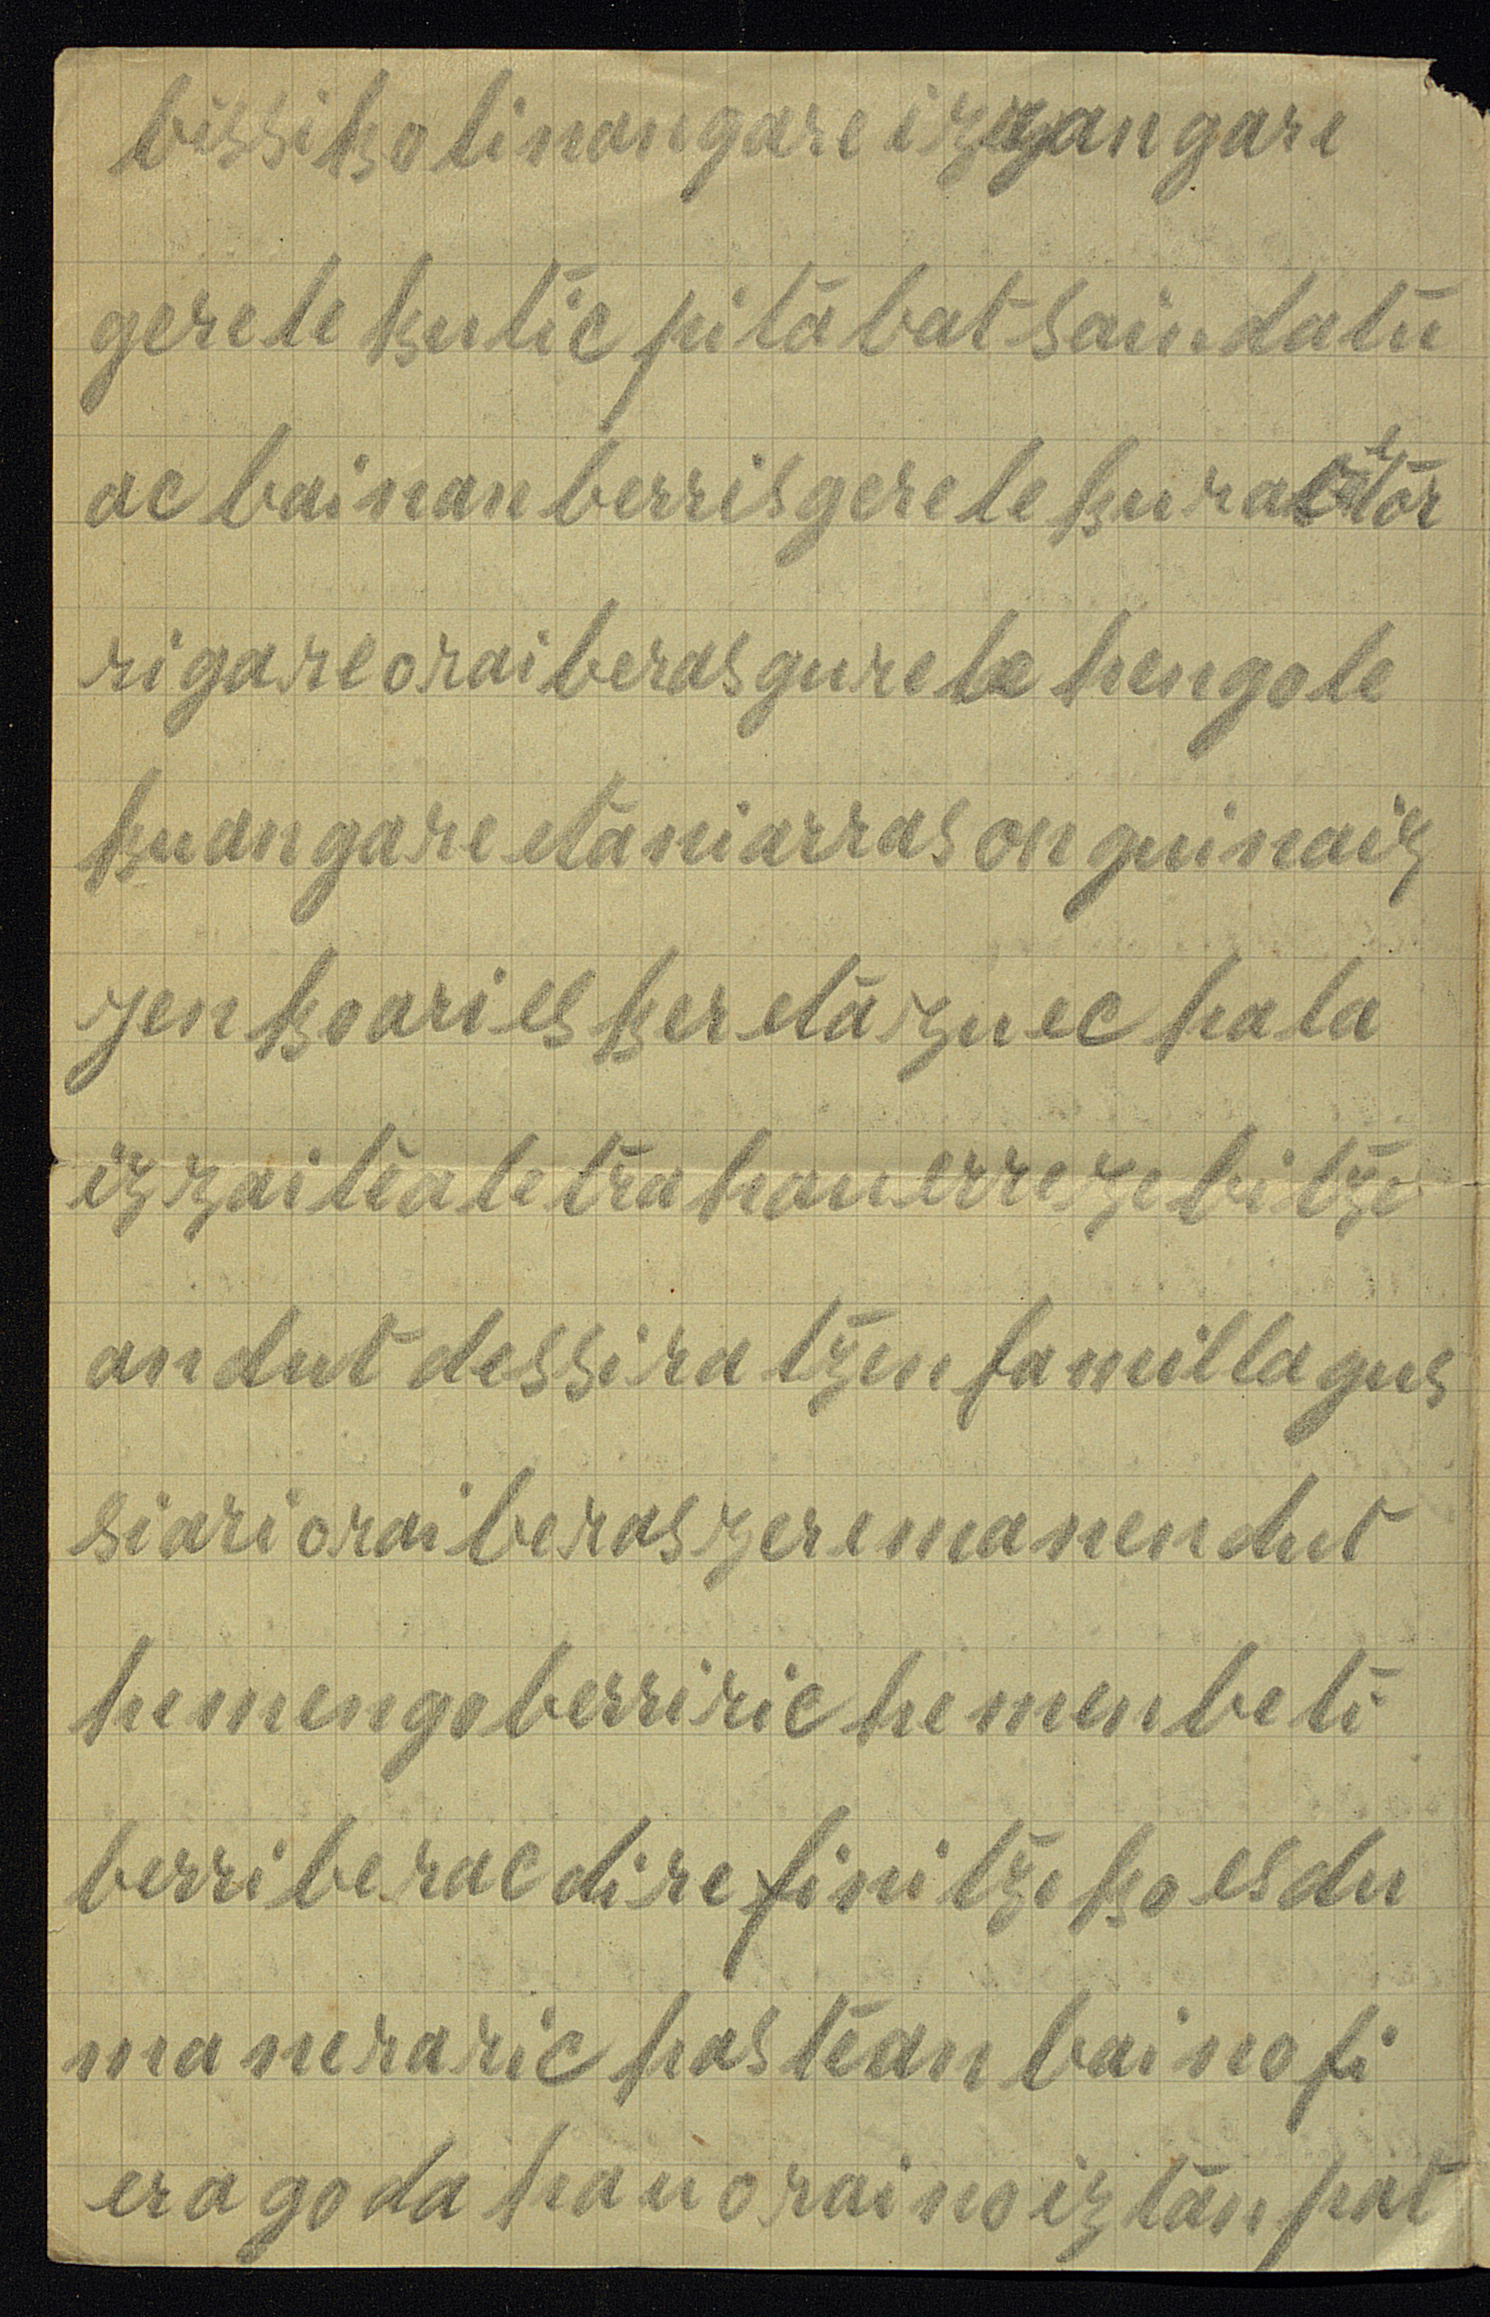 bissiko tinongare izzangare
gere lekutic pita bat saindatu
ac bainan berris gere lekurat etor
ri gare orai beras gure lehengo le
kuan gare eta ni arras ongui naiz
zen koari esker eta zuec hala
izzaitea letra hau errezebitze
an dut dessiratzen familla gus
siari orai beras zer emanen dut
hemengo berriric hemen beti
berri berac dire finitzeko es du
maneraric hastean baino fi
erago da hau oraino iztanpat